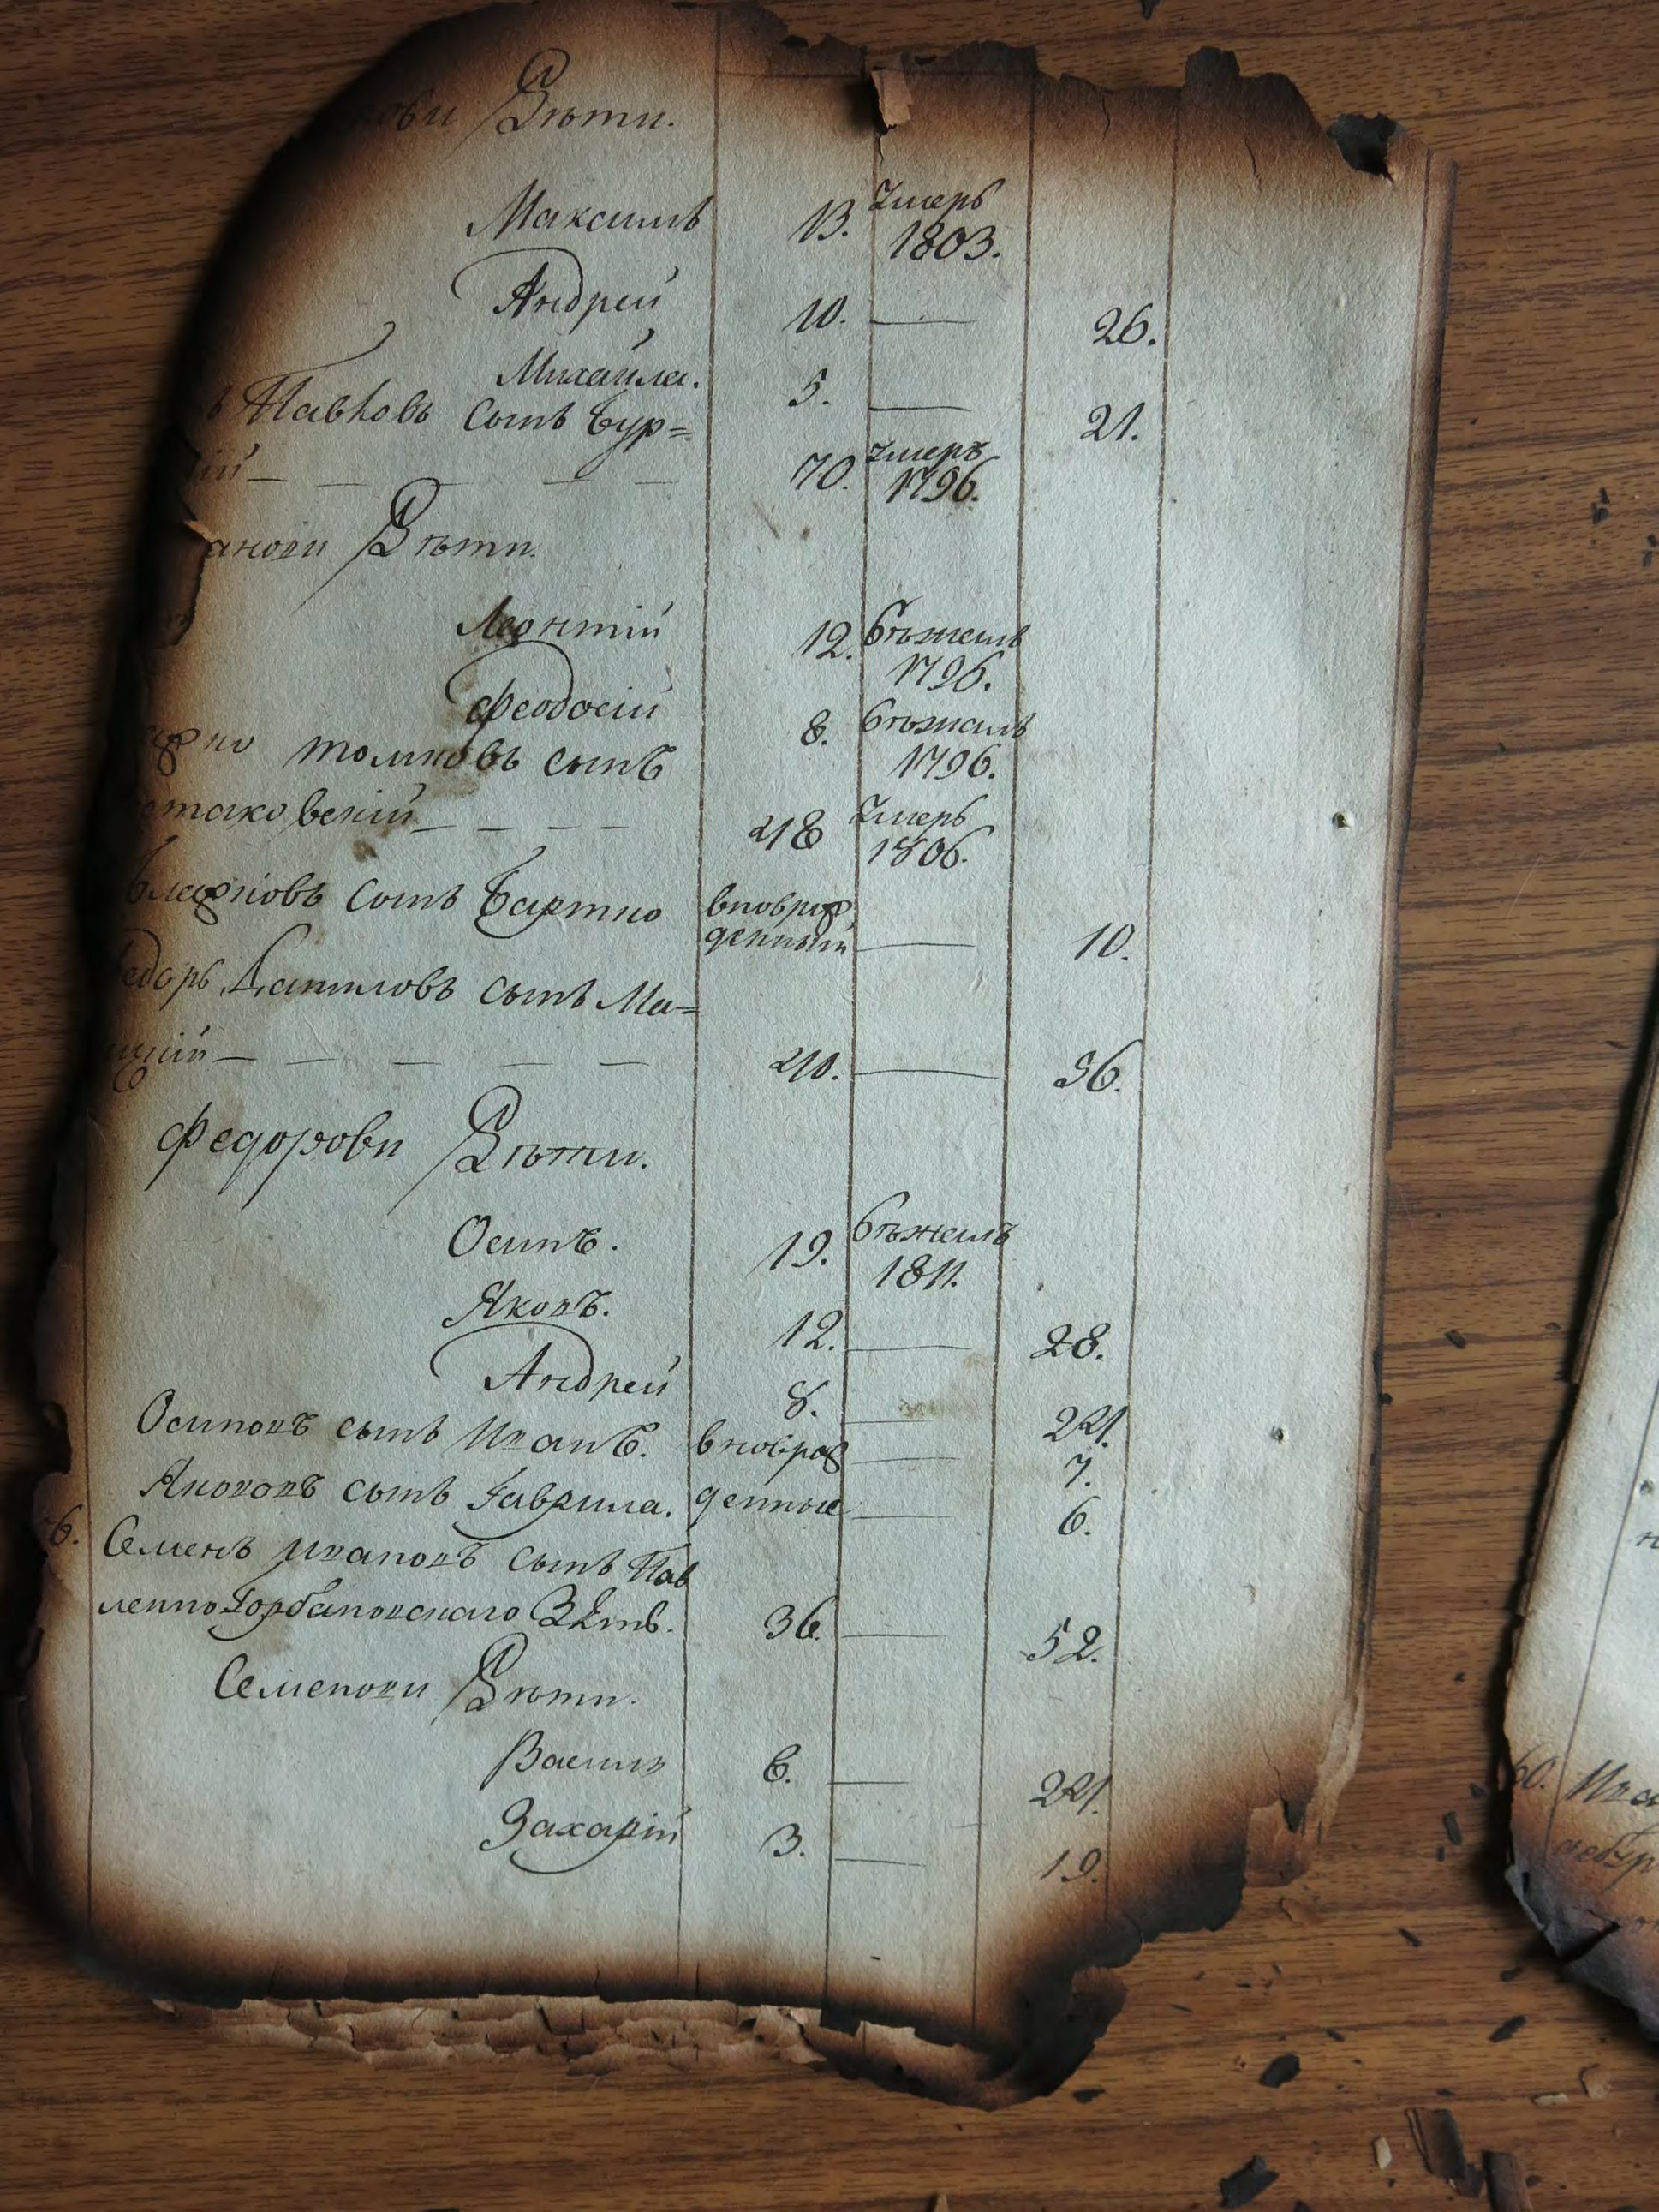 ови Дѣти.
Максимъ 13. Умеръ 1803.
Андрей 10. — 26.
Михайла. 5. — 21.
Павловъ сынъ Бур=
ій — — — — — 70. Умеръ 1796.
ановы Дѣти.
Леонтій 12. Бѣжалъ 1796.
Феодосій 8. Бѣжалъ 1796.
сынъ
ковскій — — — — 48 Умеръ 1806.
сынъ вновь рож
денный — 10.
едоръ Даниловъ сынъ Ма=
кій — — — — — 40. — 56.
Федоровы Дѣти.
Осипъ. 19. Бѣжалъ 1811.
Яковъ. 12. — 28.
Андрей 8. — 24.
Осиповъ сынъ Иванъ. вновь рож — 7.
Якововъ сынъ Гаврила. денные — 6.
6. Семенъ Ивановъ сынъ Пав
ленко Горбановскаго Зять. 36. — 52.
Семеновы Дѣти.
Василь 8. — 24.
Захарій 3. — 19.
60. Ива